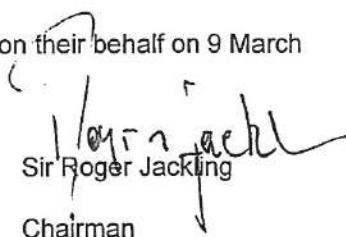 on their behalf on 9 March
Sir Roger Jackling
Chairman